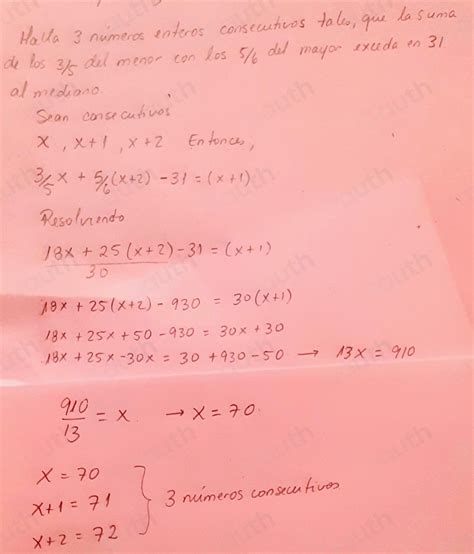 Halla 3 números enteros consecutivos tales, que la suma
de los 3/5 del menor con los 5/6 del mayor exceda en 31
al mediano.
Sean consecutivos
x, x+1, x+2 Entonces,
3/5 x + 5/6 (x+2) - 31 = (x+1)
Resolviendo
18x + 25(x+2) - 31 = (x+1)
30
18x + 25(x+2) - 930 = 30(x+1)
18x + 25x + 50 - 930 = 30x + 30
18x + 25x - 30x = 30 + 930 - 50 → 13x = 910
910/13 = x → x = 70
x = 70
x+1 = 71
x+2 = 72
} 3 números consecutivos